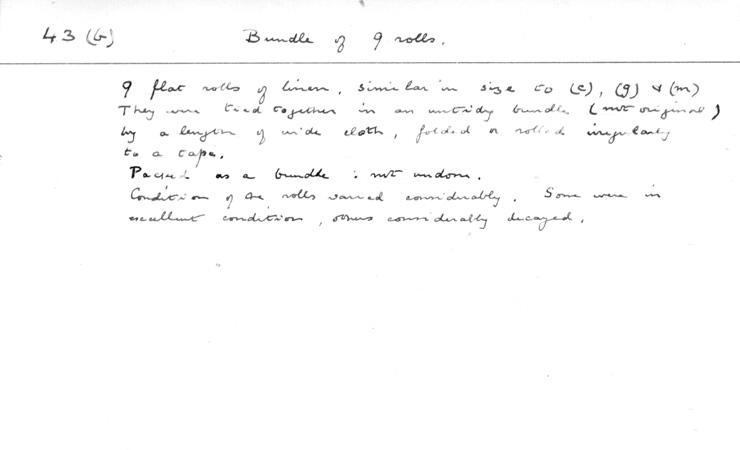 43 (b) Bundle of 9 rolls.
9 flat rolls of linen, similar in size to (c), (g) & (m)
They were tied together in an untidy bundle (not original)
by a length of wide cloth, folded or rolled irregularly
to a tape.
Packed as a bundle : not undone.
Condition of the rolls varied considerably. Some were in
excellent condition, others considerably decayed.